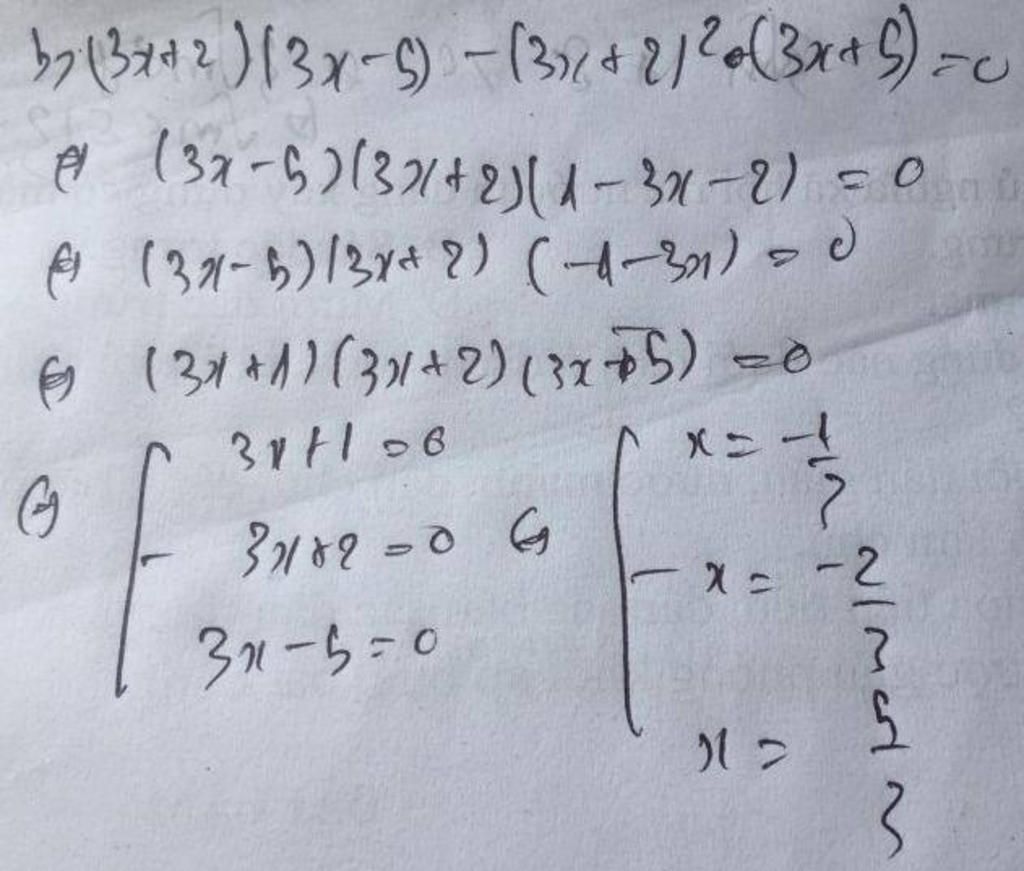 b, (3x+2)(3x-5) -(3x+2)².(3x+5)=0
⇔ (3x-5)(3x+2)(1-3x-2) = 0
⇔ (3x-5)(3x+2) (-1-3x) = 0
⇔ (3x+1)(3x+2)(3x-5) = 0
⇔ [ 3x+1=0 ⇔ [ x = -1/3
3x+2=0 x = -2/3
3x-5=0 x = 5/3